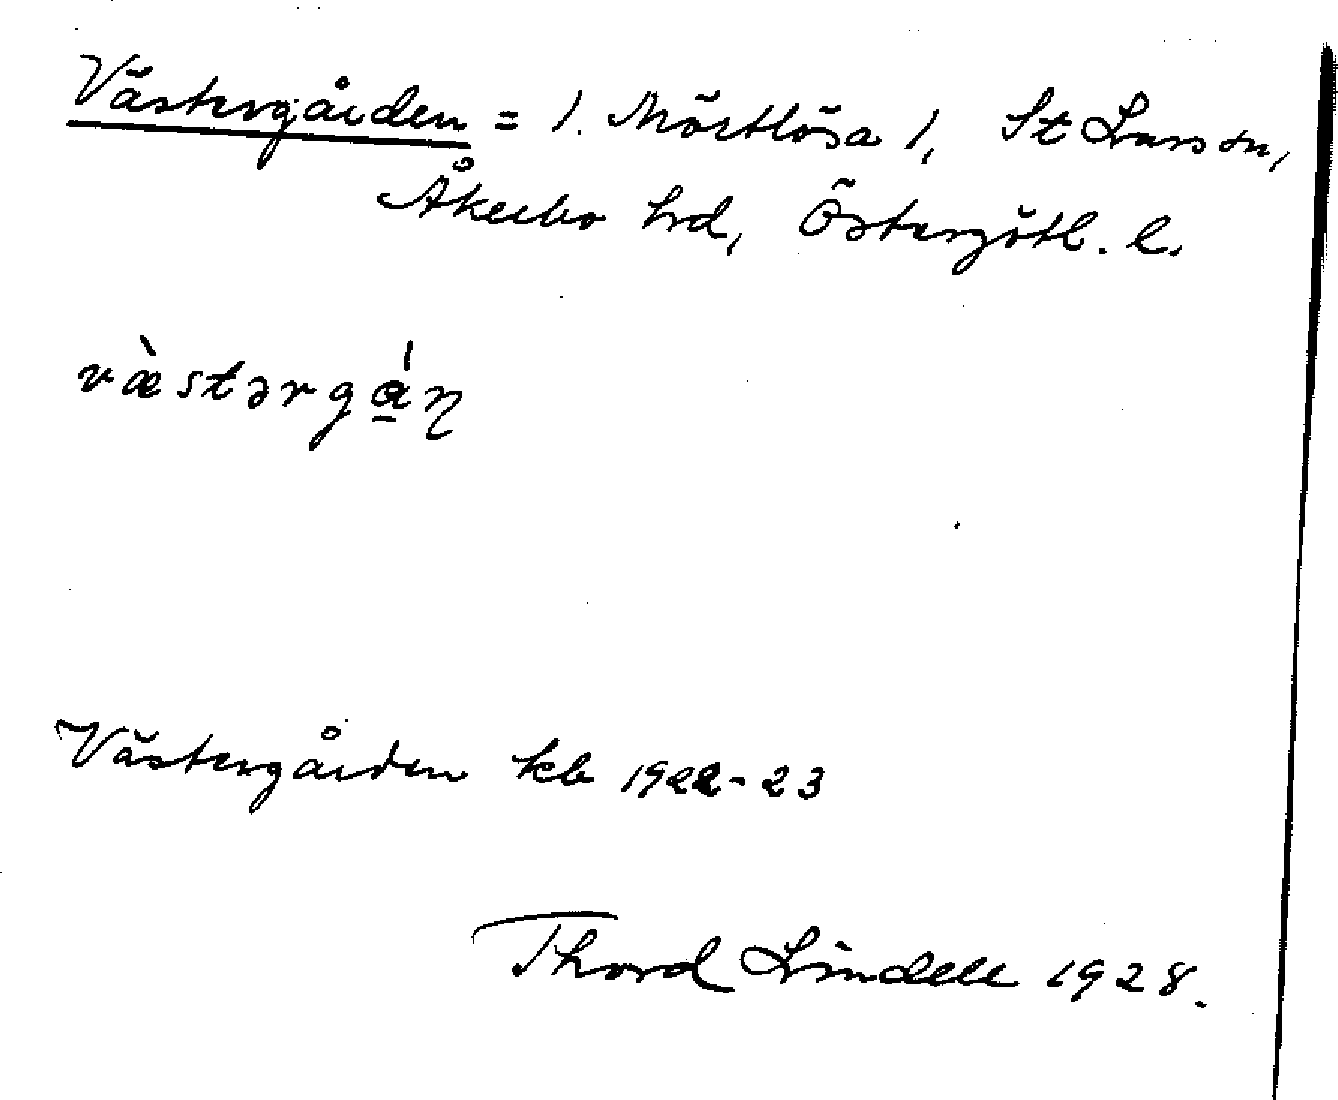 Västergården = 1. Mörtlösa 1, St Lars sn,
Åkerbo hrd, Östergötl. l.
væ̀stərgá̱ɳ
Västergården kb 1922-23
Thord Lindell 1928.